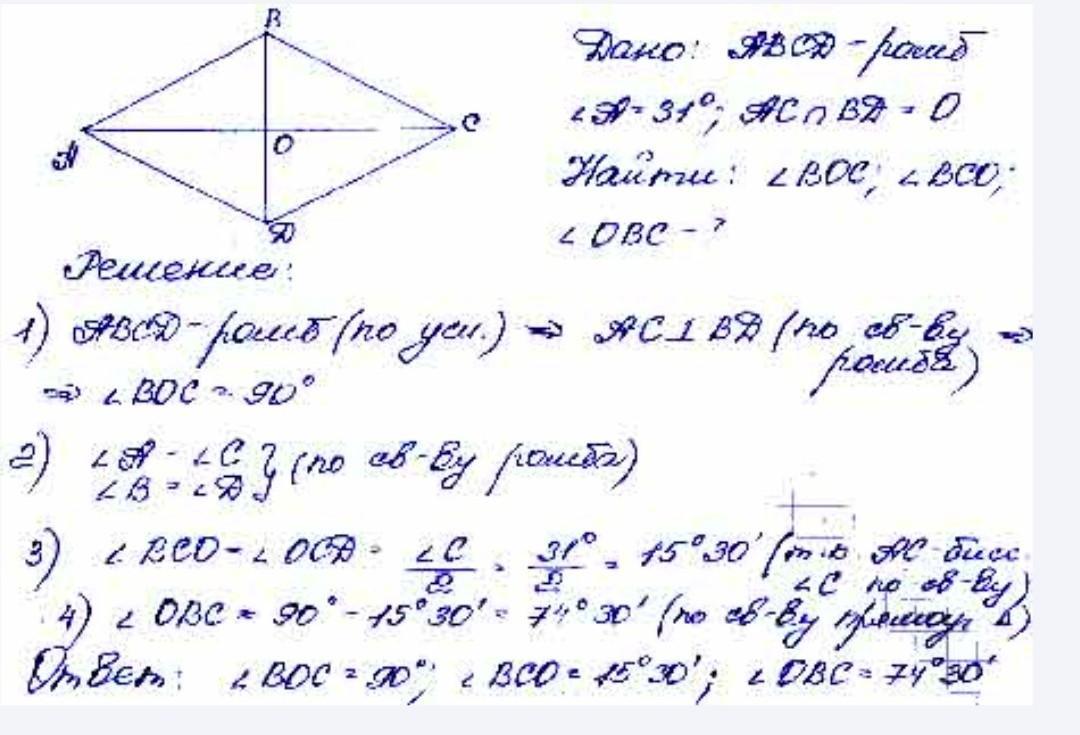 B
Дано: ABCD - ромб
∠A = 31°; AC ∩ BD = O
A
O
C
Найти: ∠BOC; ∠BCO;
∠OBC - ?
D
Решение:
1) ABCD - ромб (по усл.) ⇒ AC ⊥ BD (по св-ву ромба) ⇒
⇒ ∠BOC = 90°
2) ∠A = ∠C
∠B = ∠D } (по св-ву ромба)
3) ∠BCO = ∠OCD = ∠C/2 = 31°/2 = 15°30' (т.к. AC - бисс. ∠C по св-ву)
4) ∠OBC = 90° - 15°30' = 74°30' (по св-ву прямоуг. Δ)
Ответ: ∠BOC = 90°; ∠BCO = 15°30'; ∠OBC = 74°30'